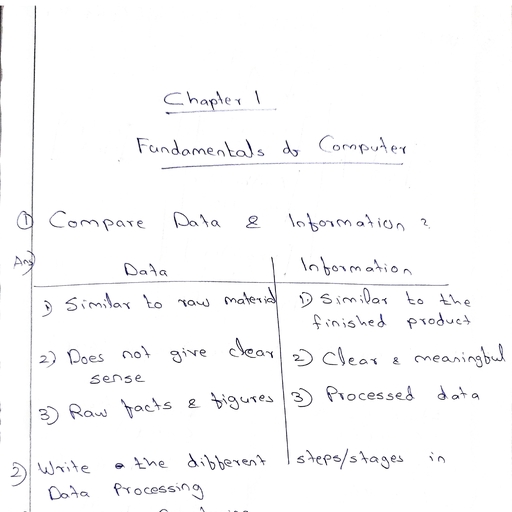 Chapter 1
Fundamentals of Computer
① Compare Data & Information ?
Ans)
Data | Information
1) Similar to raw material | 1) Similar to the
finished product
2) Does not give clear | 2) Clear & meaningful
sense
3) Raw facts & figures | 3) Processed data
2) Write the different steps/stages in
Data Processing